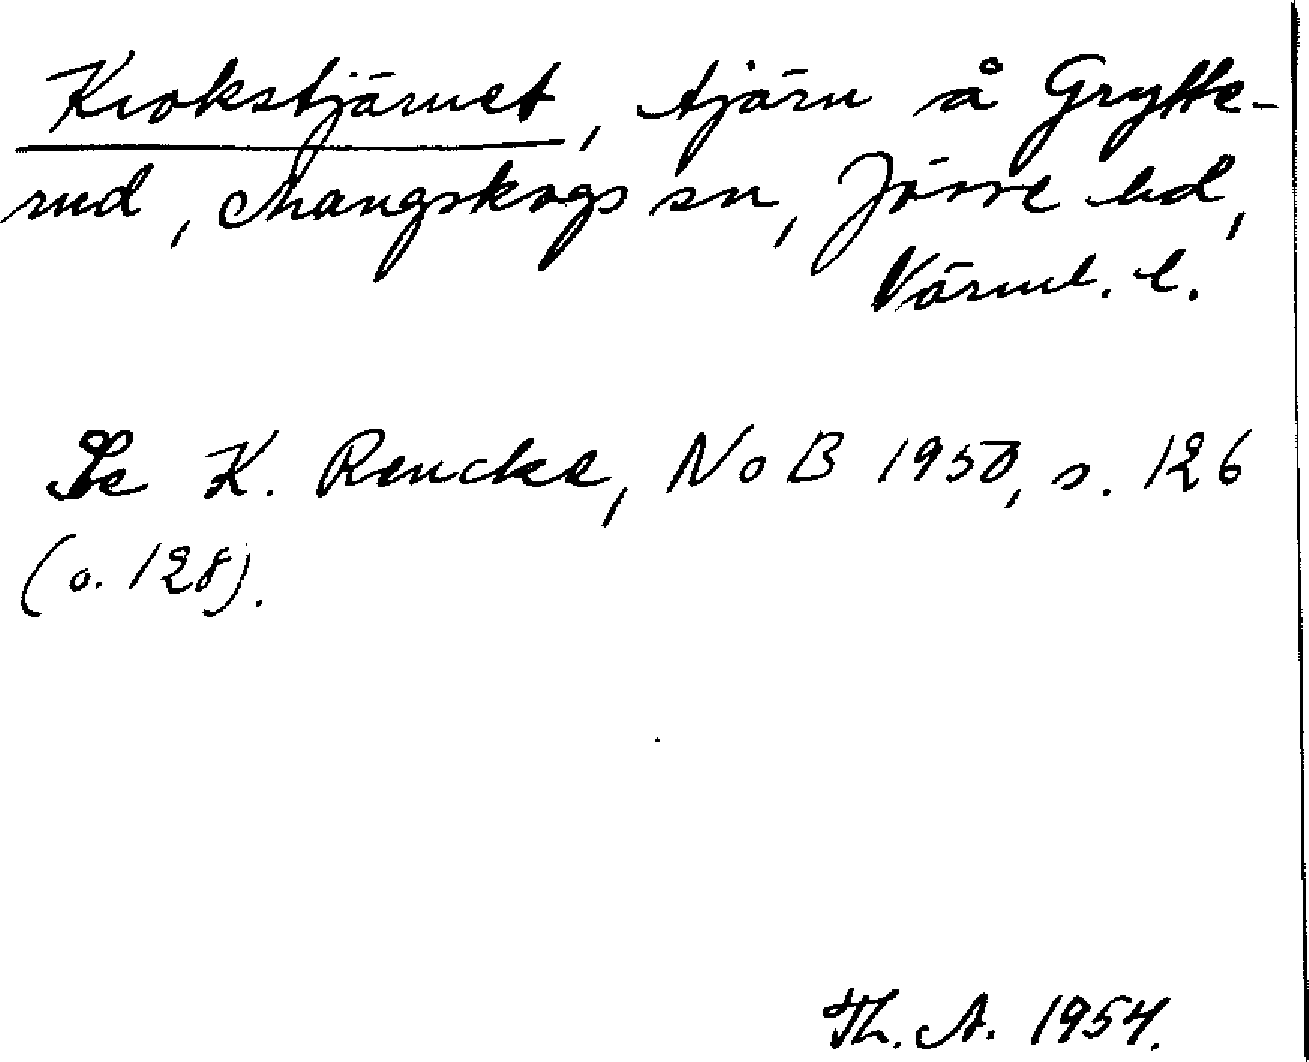 Krokstjärnet, tjärn å Grytte-
rud, Mangskogs sn, Jösse hd,
Värml. l.
Se K. Rencke, NoB 1950, s. 126
(o. 128).
Th. A. 1954.